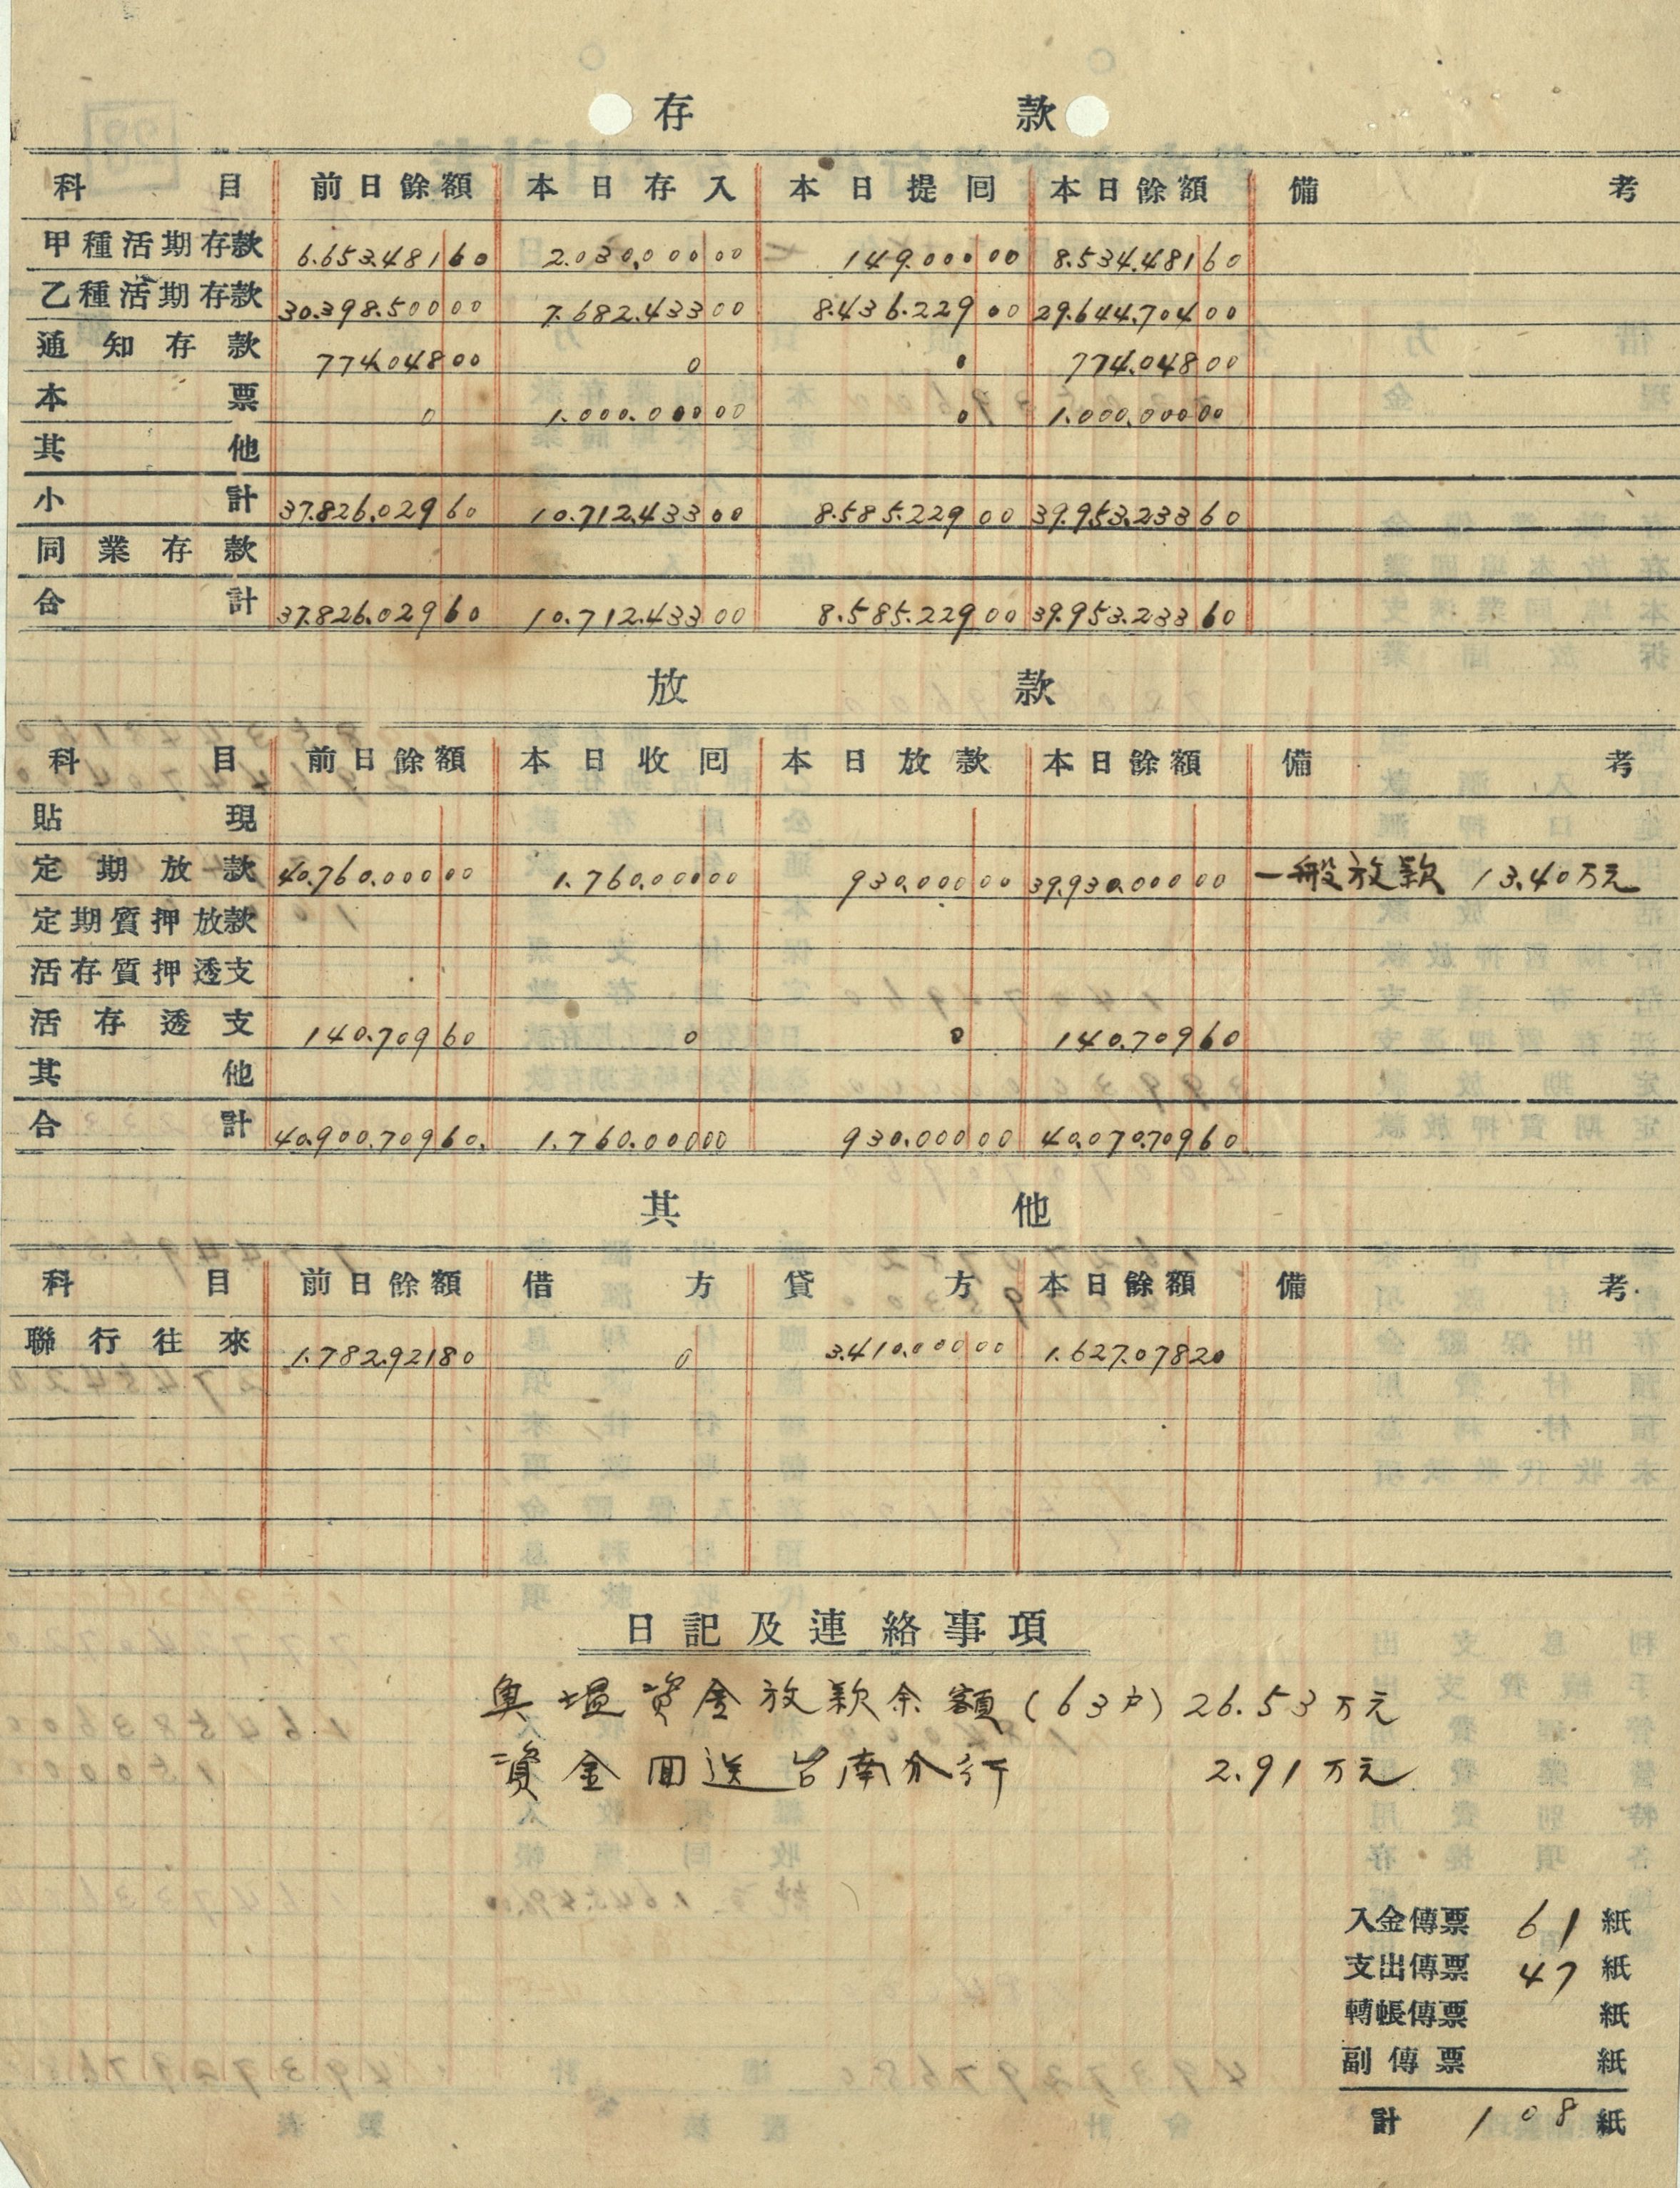 存款
科目 前日餘額 本日存入 本日提回 本日餘額 備考
甲種活期存款 6.653.481 60 2.030.000 00 149.000 00 8.534.481 60
乙種活期存款 30.398.500 00 7.682.433 00 8.436.229 00 29.644.704 00
通知存款 774.048 00 0 0 774.048 00
本票 0 1.000.000 00 0 1.000.000 00
其他
小計 37.826.029 60 10.712.433 00 8.585.229 00 39.953.233 60
同業存款
合計 37.826.029 60 10.712.433 00 8.585.229 00 39.953.233 60
放款
科目 前日餘額 本日收回 本日放款 本日餘額 備考
貼現
定期放款 40.760.000 00 1.760.000 00 930.000 00 39.930.000 00 一般放款 13.40万元
定期質押放款
活存質押透支
活存透支 140.709 60 0 0 140.709 60
其他
合計 40.900.709 60 1.760.000 00 930.000 00 40.070.709 60
其他
科目 前日餘額 借方 貸方 本日餘額 備考
聯行往來 1.782.921 80 0 3.410.000 00 1.627.078 20
日記及連絡事項
資金放款余額(63戶) 26.53万元
資金回送台南分行 2.91万元
入金傳票 61 紙
支出傳票 47 紙
轉帳傳票 紙
副傳票 紙
計 108 紙